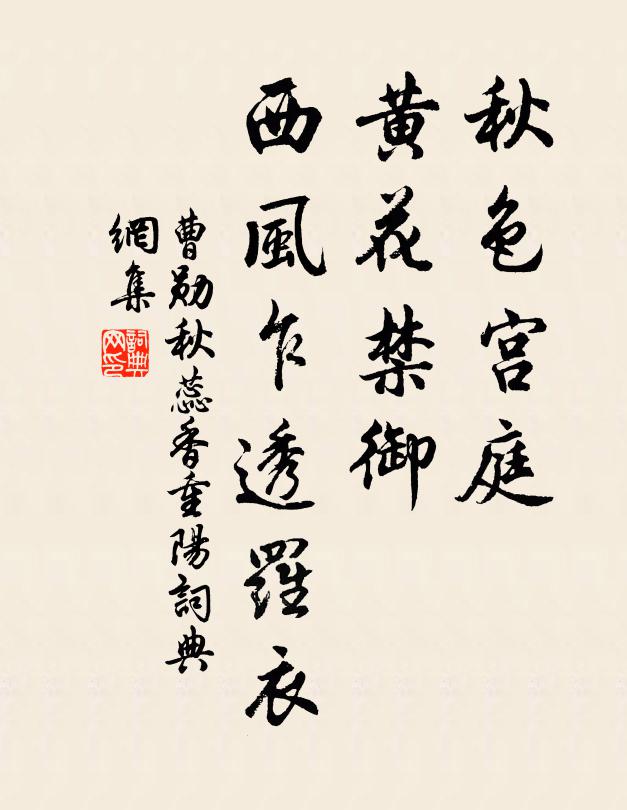 秋色宫庭
黄花禁御
西風乍透羅衣
曹勛秋蕊香重陽詞典
網集
詞典
网印